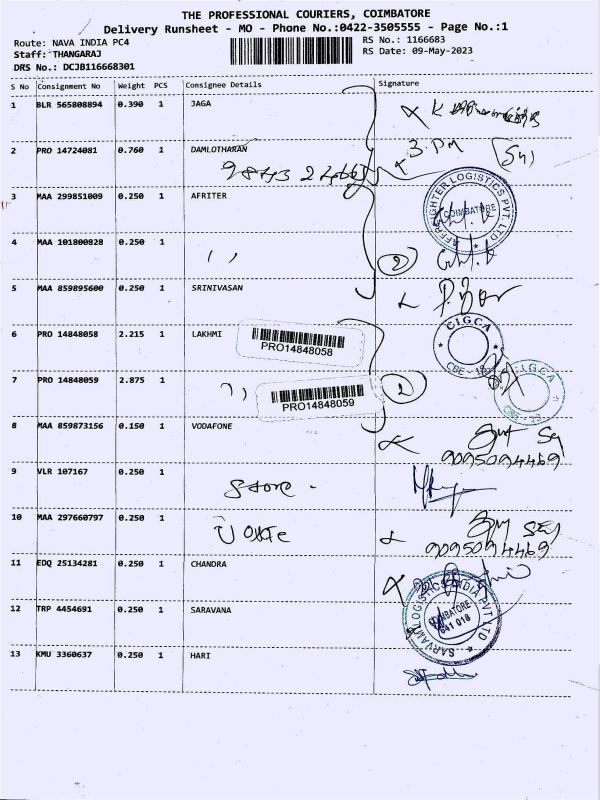 THE PROFESSIONAL COURIERS, COIMBATORE
Delivery Runsheet - MO - Phone No.:0422-3505555 - Page No.:1
Route: NAVA INDIA PC4
RS No.: 1166683
Staff: THANGARAJ
RS Date: 09-May-2023
DRS No.: DCJB116668301
S No Consignment No Weight PCS Consignee Details Signature
1 BLR 565808894 0.390 1 JAGA
K
2 PRO 14724081 0.760 1 DAMLOTHARAN
3.PM
3 MAA 299851009 0.250 1 AFRITER
AFFREIGHTER LOGISTICS PVT. LTD
COIMBATORE
4 MAA 101800828 0.250 1 ''
2
5 MAA 859895600 0.250 1 SRINIVASAN
6 PRO 14848058 2.215 1 LAKHMI
PRO14848058
CIGCA
CBE - 18
7 PRO 14848059 2.875 1 ''
PRO14848059
2
CIGCA
8 MAA 859873156 0.150 1 VODAFONE
9095094469
9 VLR 107167 0.250 1
Store -
10 MAA 297660797 0.250 1
9095094469
11 EDQ 25134281 0.250 1 CHANDRA
12 TRP 4454691 0.250 1 SARAVANA
SARVAM LOGISTICS INDIA PVT LTD
COIMBATORE
641 018
13 KMU 3360637 0.250 1 HARI